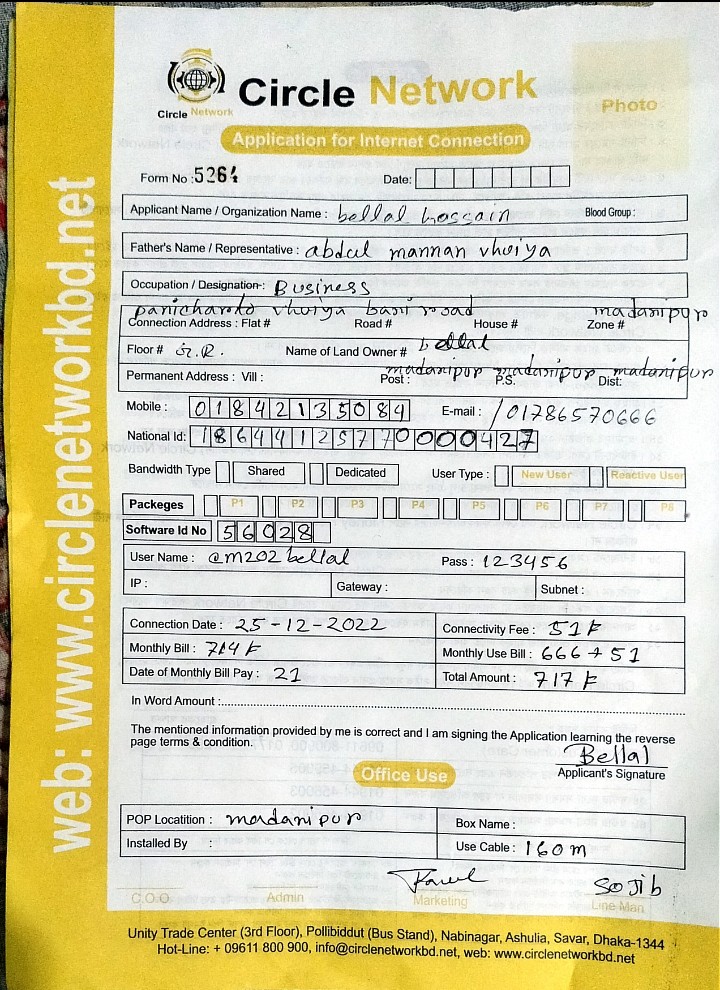 Circle Network
Circle Network
Photo
Application for Internet Connection
Form No : 5264 Date:
Applicant Name / Organization Name : bellal hossain Blood Group :
Father's Name / Representative : abdul mannan vhuiya
Occupation / Designation : Business
vhuiya bari road madanipur
Connection Address : Flat # Road # House # Zone #
Floor # Name of Land Owner # bellal
madanipur madanipur madanipur
Permanent Address : Vill : Post : P.S. Dist:
Mobile : 01842135084 E-mail : /01786570666
National Id: 18644125770000427
Bandwidth Type Shared Dedicated User Type : New User Reactive User
Packeges P1 P2 P3 P4 P5 P6 P7 P8
Software Id No 56028
User Name : @m202bellal Pass : 123456
IP : Gateway : Subnet :
Connection Date : 25-12-2022 Connectivity Fee : 51৳
Monthly Bill : 714৳ Monthly Use Bill : 666+51
Date of Monthly Bill Pay : 21 Total Amount : 717৳
In Word Amount :
The mentioned information provided by me is correct and I am signing the Application learning the reverse
page terms & condition.
Bellal
Applicant's Signature
Office Use
POP Locatition : madanipur Box Name :
Installed By : Use Cable : 160m
Sojib
C.O.O Admin Marketing Line Man
Unity Trade Center (3rd Floor), Pollibiddut (Bus Stand), Nabinagar, Ashulia, Savar, Dhaka-1344
Hot-Line: + 09611 800 900, info@circlenetworkbd.net, web: www.circlenetworkbd.net
web: www.circlenetworkbd.net